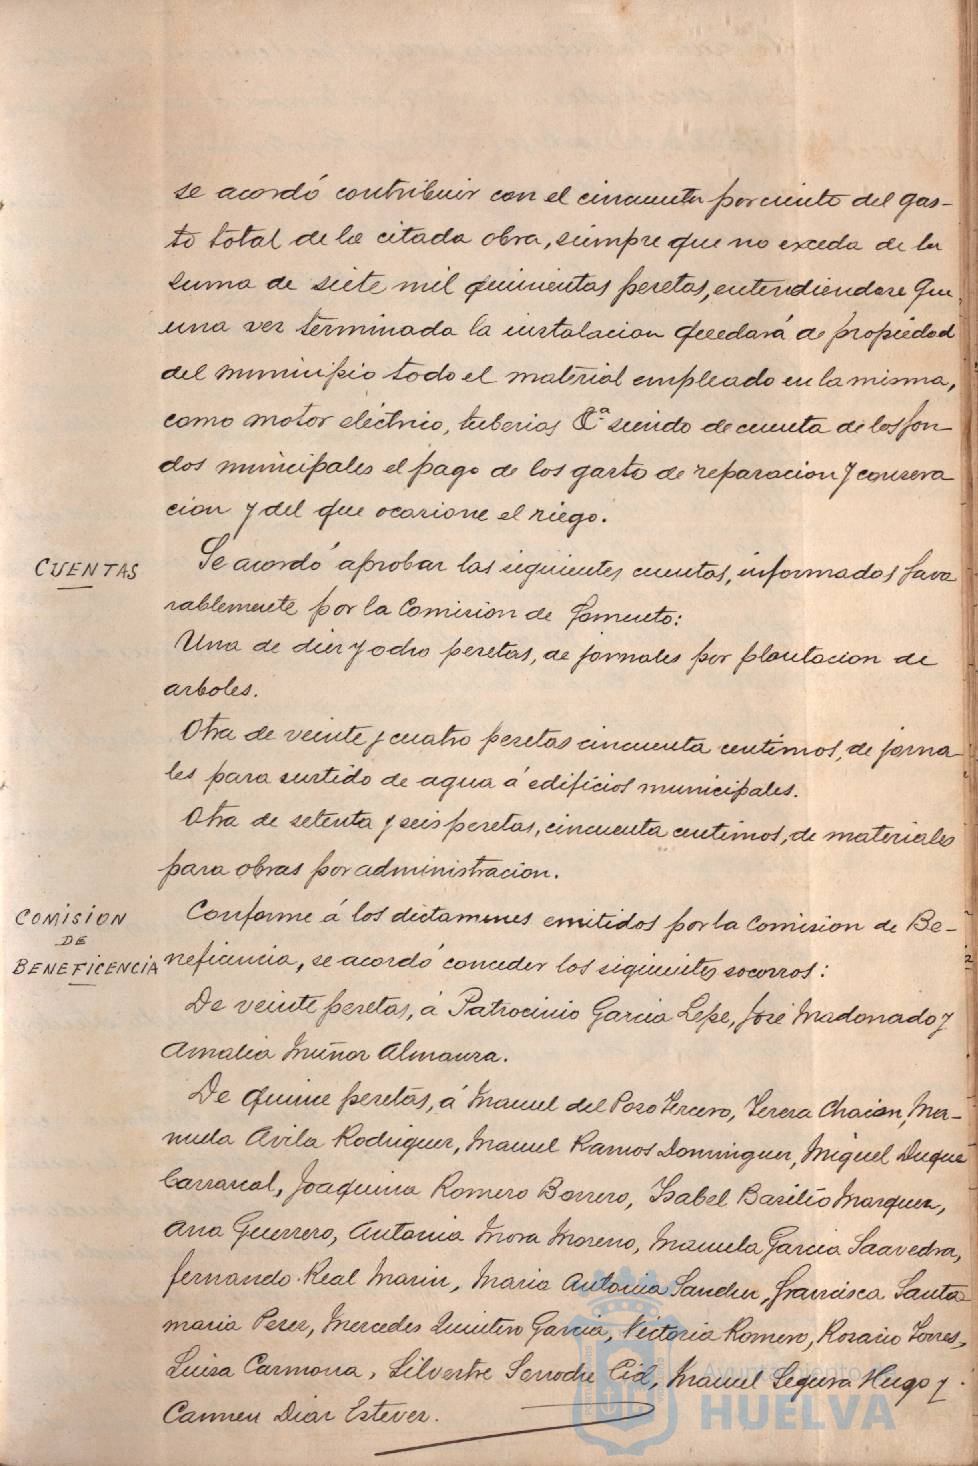 se acordó contribuir con el cincuenta por ciento del gas-
to total de la citada obra, siempre que no exceda de la
suma de siete mil quinientas pesetas, entendiendose que
una vez terminada la instalacion quedará de propiedad
del municipio todo el material empleado en la misma,
como motor eléctrico, tuberias &ª siendo de cuenta de los fon-
dos municipales el pago de los gasto de reparacion y conserva
cion y del que ocasione el riego.
CUENTAS
Se acordó aprobar las siguientes cuentas, informadas favo
rablemente por la Comision de fomento:
Una de diez y ocho pesetas, de jornales por plantacion de
arboles.
Otra de veinte y cuatro pesetas cincuenta centimos, de jorna-
les para surtido de agua á edificios municipales.
Otra de setenta y seis pesetas, cincuenta centimos, de materiales
para obras por administracion.
COMISION
DE
BENEFICENCIA
Conforme á los dictamenes emitidos por la Comision de Be-
neficencia, se acordó conceder los siguientes socorros:
De veinte pesetas, á Patrocinio Garcia Lepe, José Madorrado y
Amalia Muñoz Almaura.
De quince pesetas, á Manuel del Pozo Tercero, Teresa Chacon, Ma-
nuela Avila Rodriguez, Manuel Ramos Dominguez, Miguel Duque
Carrascal, Joaquina Romero Borrero, Isabel Basilio Marquez,
Ana Guerrero, Antonia Mora Moreno, Manuela Garcia Saavedra,
Fernando Real Marin, Maria Antonia Sanchez, Francisca Santa
maria Perez, Mercedes Quintero Garcia, Victoria Romero, Rosario Torres,
Luisa Carmona, Silvestre Cid, Manuel Segura Hugo y
Carmen Diaz Estevez.
Ayuntamiento de
HUELVA